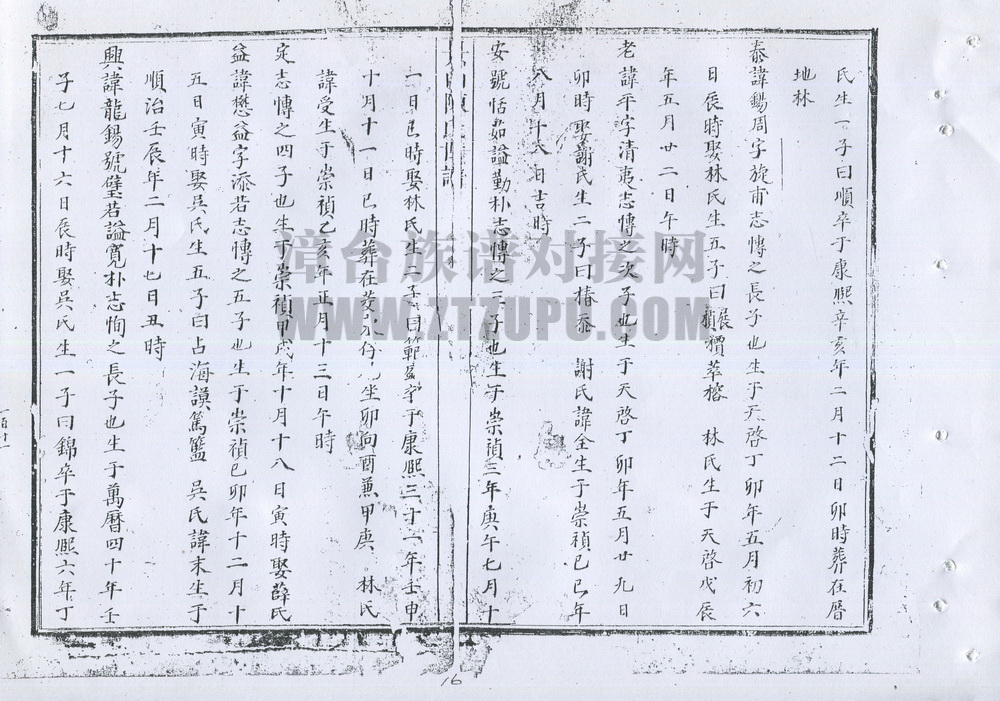 氏生一子曰順卒于康熙辛亥年二月十二日卯時葬在厝
地林
泰諱錫周字旋甫志博之長子也生于天啓丁卯年五月初六
日辰時娶林氏生五子曰展禎價萃榕 林氏生于天啓戊辰
年五月廿二日午時
老諱平字清夷志博之次子也生于天啓丁卯年五月廿九日
卯時娶謝氏生二子曰椿泰 謝氏諱金生于崇禎己巳年
八月十六日吉時
安號恬茹謚勤朴志博之三子也生于崇禎三年庚午七月十
陳氏世譜
一日巳時娶林氏生二子曰範 卒于康熙三十一年壬申
十月十一日巳時葬在 坐卯向酉兼甲庚 林氏
諱受生于崇禎乙亥年正月十三日午時
定志博之四子也生于崇禎甲戌年十月十八日寅時娶薛氏
益諱懋益字添若志博之五子也生于崇禎己卯年十二月十
五日寅時娶吳氏生五子曰占海謨篤籃 吳氏諱末生于
順治壬辰年二月十七日丑時
興諱龍錫號璧若謚寬朴志恂之長子也生于萬曆四十年壬
子七月十六日辰時娶吳氏生一子曰錦卒于康熙六年丁
漳台族谱对接网
WWW.ZTZUPU.COM
16